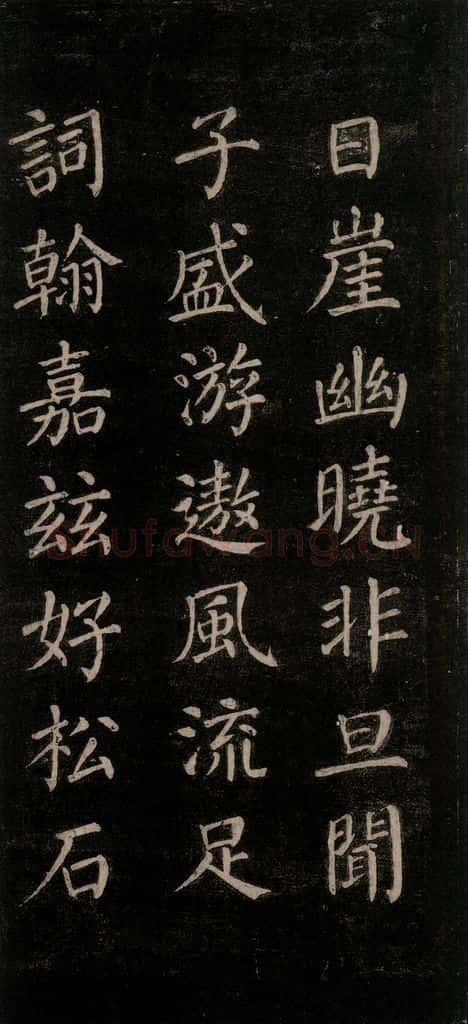 日崖幽曉非旦聞
子盛游遨風流足
詞翰嘉兹好松石
shufawang.cn